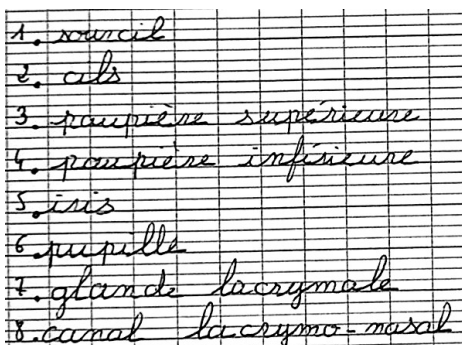 1. sourcil
2. cils
3. paupière supérieure
4. paupière inférieure
5. iris
6. pupille
7. glande lacrymale
8. canal lacrymo-nasal